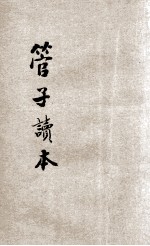 管子讀本